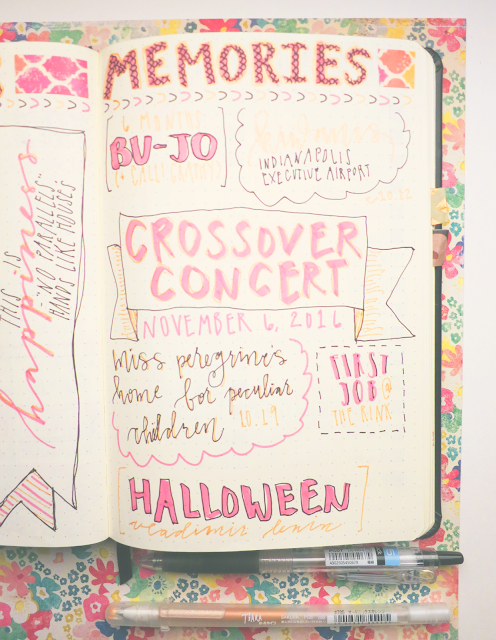 THIS IS
happiness
"NO PARALLELS"
HANDS LIKE HOUSES
MEMORIES
6 MONTHS
BU-JO
(+ CALLIGRAPHY)
INDIANAPOLIS
EXECUTIVE AIRPORT
CROSSOVER
CONCERT
NOVEMBER 6, 2016
miss peregrine's
home for peculiar
children 10.19
FIRST
JOB @
THE RINK
HALLOWEEN
vladimir lenin